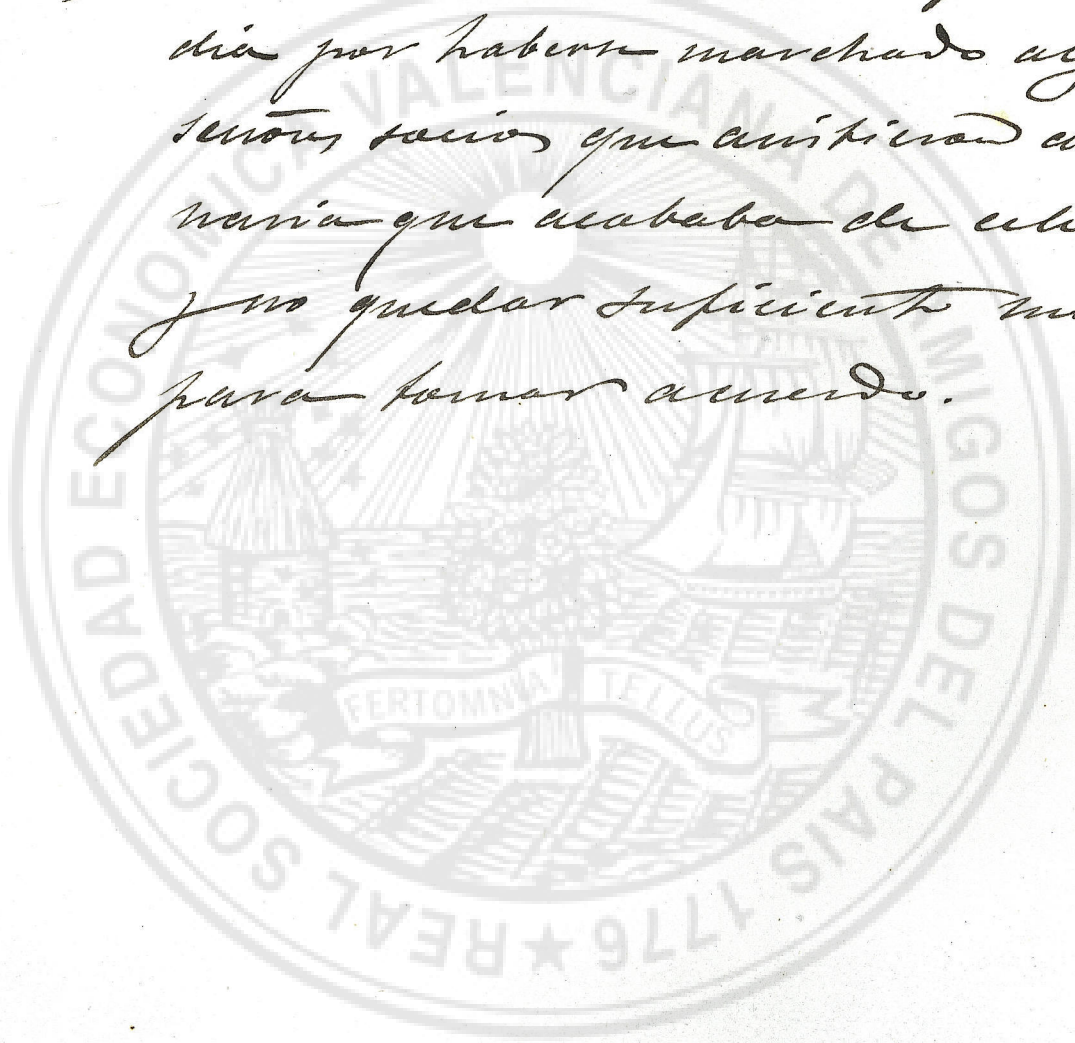 dia por haberse marchado
señores socios que asistieron a
naria que acababa de cele
y no quedar suficiente nu
para tomar acuerdo.
REAL SOCIEDAD ECONOMICA VALENCIANA DE AMIGOS DEL PAIS 1776 ★
FERTOMNIA TELLUS